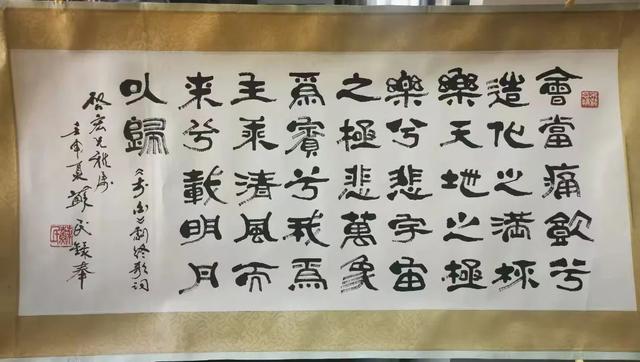 會當痛飲兮
造化之滿杯
樂天地之極
樂兮悲宇宙
之極悲萬象
爲賓兮我爲
主乘清風而
来兮載明月
以歸
《李白》劇终歌词
啓宏兄雅属
壬申夏 蘇民録奉